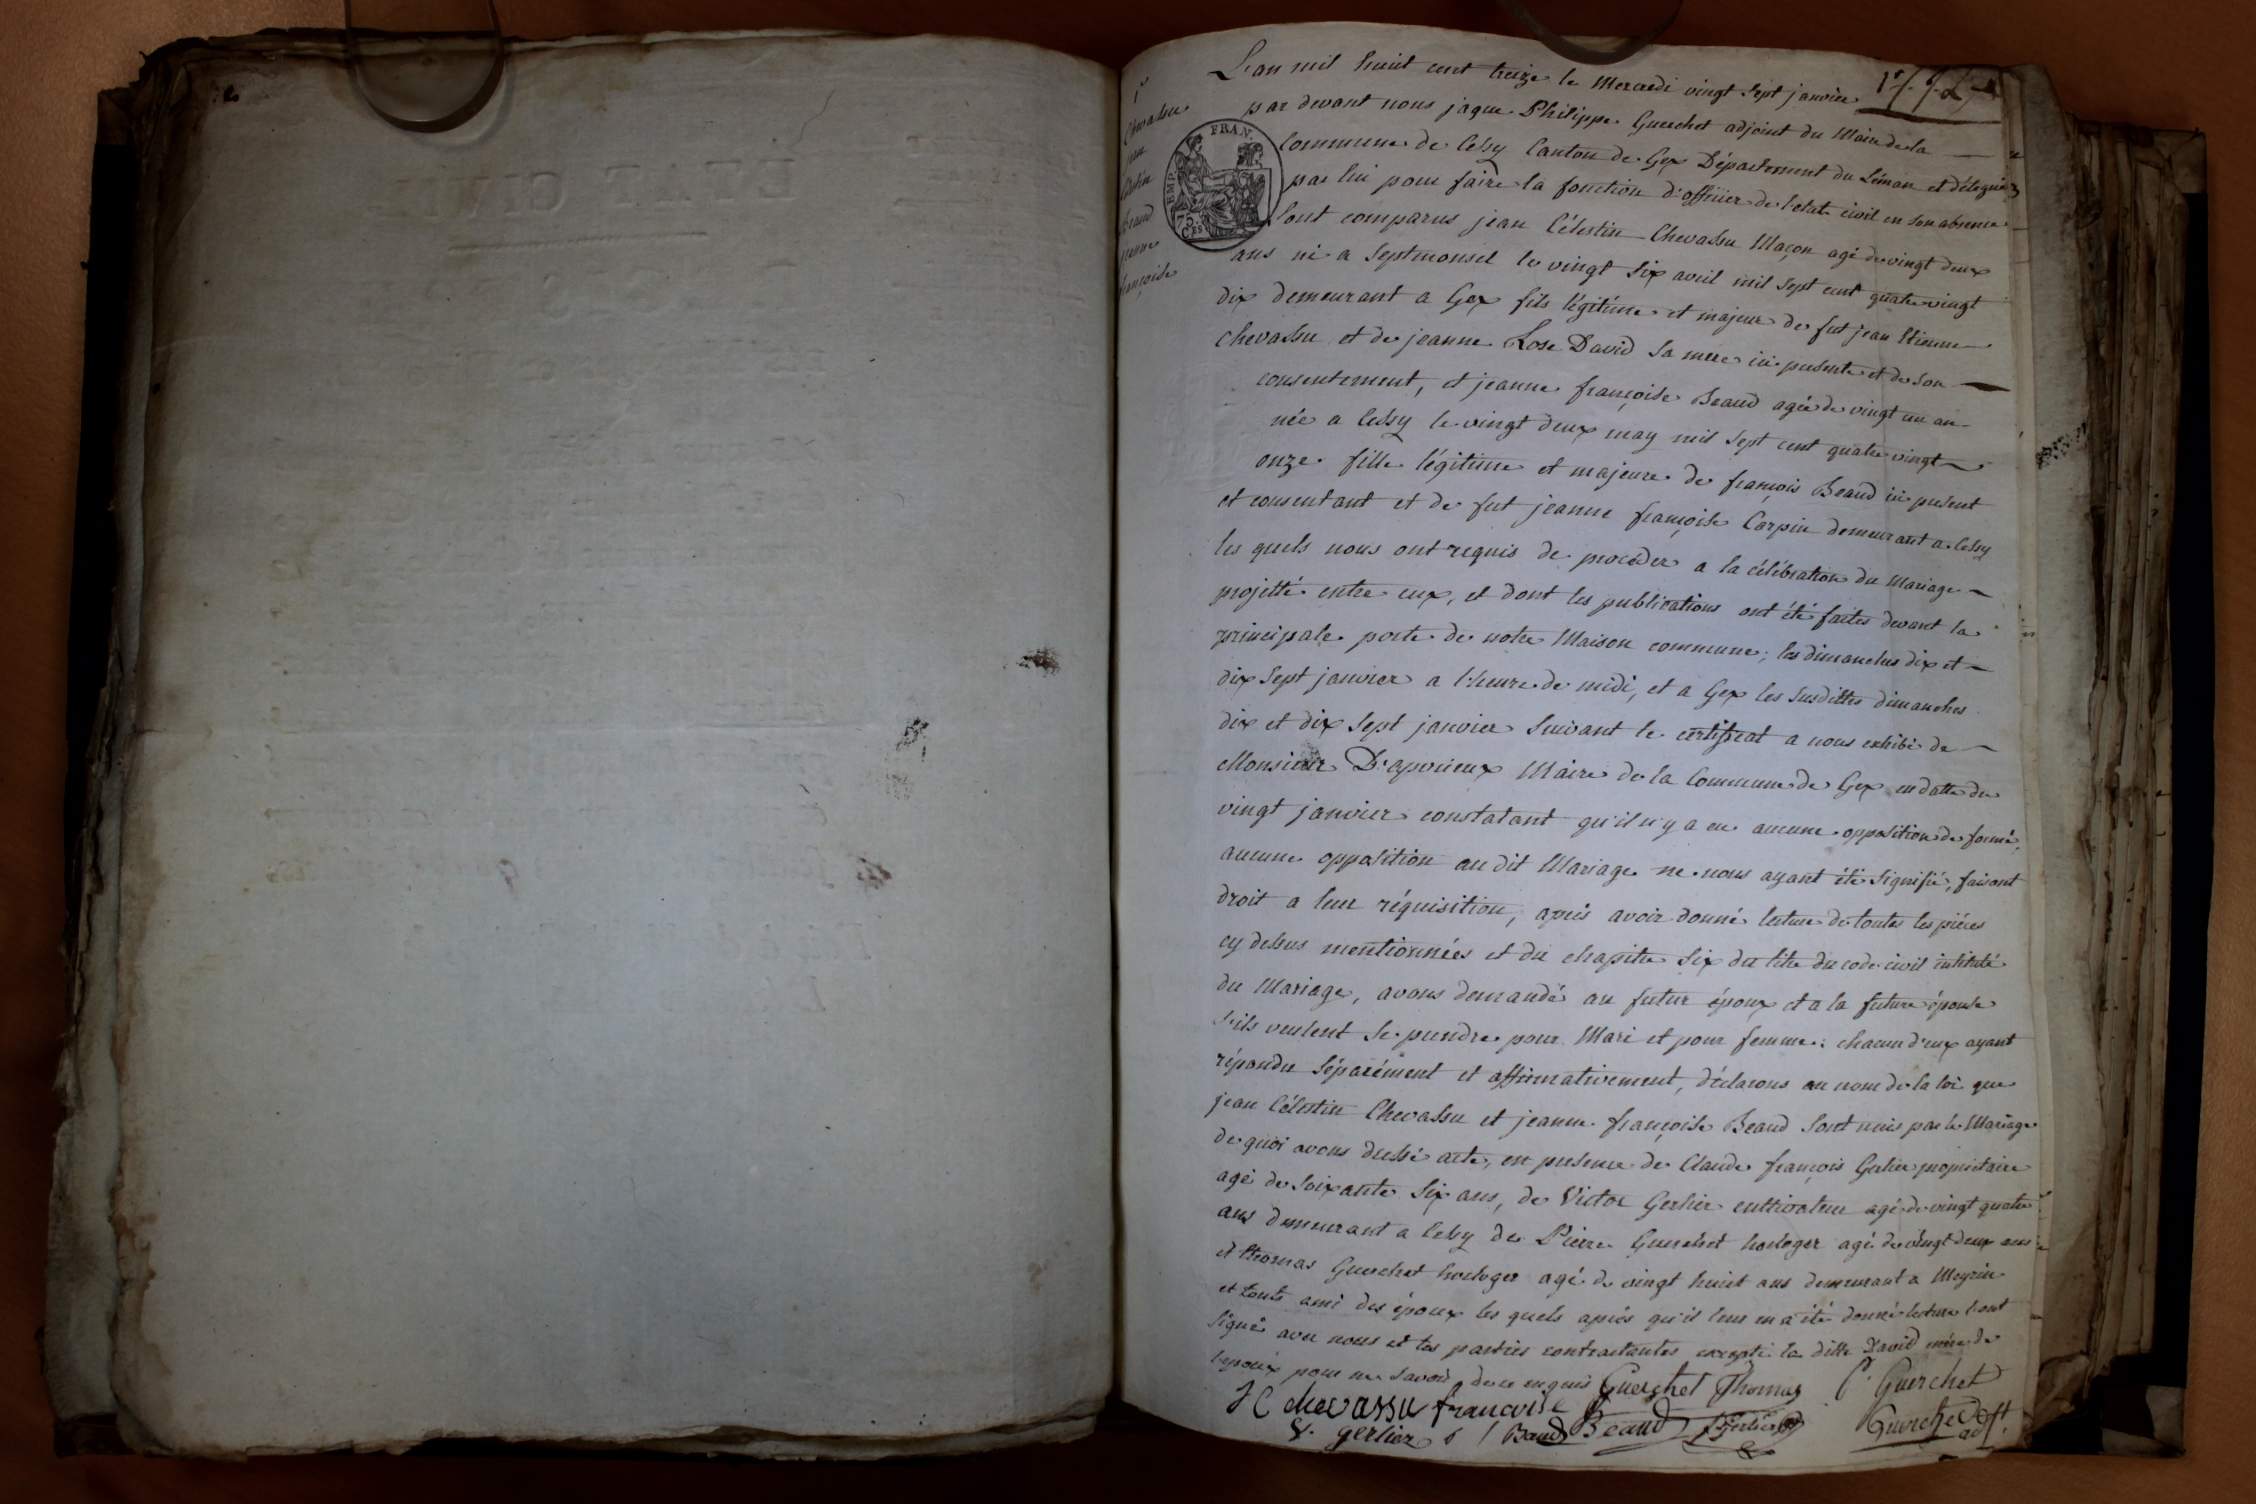 1er
Chevassu
jean
Célestin
Beaud
jeanne
françoise
L'an mil huit cent treize le Mercredi vingt sept janvier
par devant nous jaque Philippe Guerchet adjoint du Maire de la
Commune de Cessy Canton de Gex Département du Léman et délégué
par lui pour faire la fonction d'officier de l'etat civil en son absence
EMP. FRAN.
75. CES
Sont comparus jean Célestin Chevassu Maçon agé de vingt deux
ans né a Septmoncel le vingt six avril mil sept cent quatre vingt
dix demeurant a Gex fils légitime et majeur de fut jean Etienne
Chevassu et de jeanne Rose David sa mere ici presente et de son
consentement, et jeanne françoise Beaud agée de vingt un an
née a Cessy le vingt deux may mil sept cent quatre vingt
onze fille légitime et majeure de françois Beaud ici present
et consentant et de fut jeanne françoise Carpin demeurant a Cessy
les quels nous ont requis de procéder a la célébration du Mariage
projetté entre eux, et dont les publications ont été faites devant la
principale porte de notre Maison commune; les dimanches dix et
dix sept janvier a l'heure de midi, et a Gex les susdittes dimanches
dix et dix sept janvier suivant le certificat a nous exhibé de
Monsieur D'apvrieux Maire de la Commune de Gex en datte du
vingt janvier constatant qu'il n'y a eu aucune opposition de formé,
aucune opposition au dit Mariage ne nous ayant été signifié, faisont
droit a leur réquisition, après avoir donné lecture de toutes les pièces
cy dessus mentionnées et du chapitre six du titre du code civil intitulé
du Mariage, avons demandé au futur époux et a la future épouse
s'ils veulent se prendre pour Mari et pour femme: chacun d'eux ayant
répondu séparément et affirmativement, déclarons au nom de la loi que
jean Célestin Chevassu et jeanne françoise Beaud sont unis par le Mariage
de quoi avons dressé acte, en presence de Claude françois Gerlier propriétaire
agé de soixante six ans, de Victor Gerlier cultivateur agé de vingt quatre
ans demeurant a Cessy de Pierre Guerchet horloger agé de vingt deux ans
et thomas Guerchet horloger agé de vingt huit ans demeurant a Meyrin
et touts ami des époux les quels après qu'il leur en a été donné lecture l'ont
signé avec nous et les parties contractantes excepté la ditte David mère de
l'époux pour ne savoir de ce enquis Guerchet Thomas P. Guerchet
J C chevassu francoise Beaud Guerchet adjt.
gerlier Baud